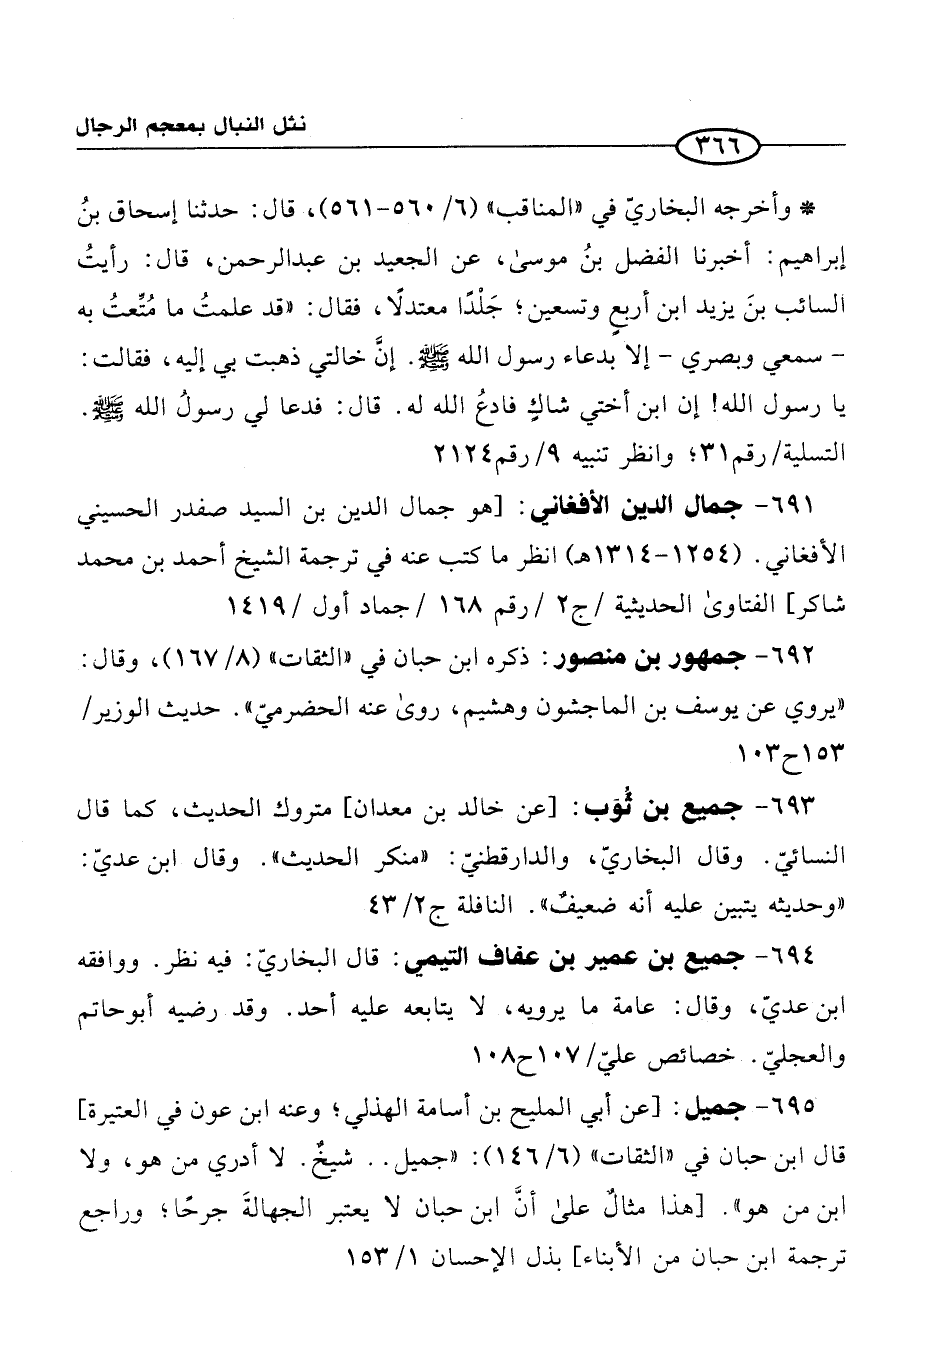 نثل النبال بمعجم الرجال
٣٦٦
* وأخرجه البخاريّ في «المناقب» (٦/ ٥٦٠-٥٦١)، قال: حدثنا إسحاق بنُ
إبراهيم: أخبرنا الفضل بنُ موسىٰ، عن الجعيد بن عبدالرحمن، قال: رأيتُ
السائب بنَ يزيد ابن أربعٍ وتسعين؛ جَلْدًا معتدلًا، فقال: «قد علمتُ ما مُتِّعتُ به
- سمعي وبصري - إلا بدعاء رسول الله ﷺ. إنَّ خالتي ذهبت بي إليه، فقالت:
يا رسول الله! إن ابن أختي شاكٍ فادعُ الله له. قال: فدعا لي رسولُ الله ﷺ.
التسلية/ رقم٣١؛ وانظر تنبيه ٩/ رقم٢١٢٤
٦٩١- جمال الدين الأفغاني: [هو جمال الدين بن السيد صفدر الحسيني
الأفغاني. (١٢٥٤-١٣١٤هـ) انظر ما كتب عنه في ترجمة الشيخ أحمد بن محمد
شاكر] الفتاوىٰ الحديثية /ج٢ /رقم ١٦٨ /جماد أول /١٤١٩
٦٩٢- جمهور بن منصور: ذكره ابن حبان في «الثقات» (٨/ ١٦٧)، وقال:
«يروي عن يوسف بن الماجشون وهشيم، روىٰ عنه الحضرميّ». حديث الوزير/
١٥٣ح١٠٣
٦٩٣- جميع بن ثُوَب: [عن خالد بن معدان] متروك الحديث، كما قال
النسائيّ. وقال البخاريّ، والدارقطنيّ: «منكر الحديث». وقال ابن عديّ:
«وحديثه يتبين عليه أنه ضعيفٌ». النافلة ج٢/ ٤٣
٦٩٤- جميع بن عمير بن عفاف التيمي: قال البخاريّ: فيه نظر. ووافقه
ابن عديّ، وقال: عامة ما يرويه، لا يتابعه عليه أحد. وقد رضيه أبوحاتم
والعجليّ. خصائص عليّ/ ١٠٧ح١٠٨
٦٩٥- جميل: [عن أبي المليح بن أسامة الهذلي؛ وعنه ابن عون في العتيرة]
قال ابن حبان في «الثقات» (٦/ ١٤٦): «جميل.. شيخٌ. لا أدري من هو، ولا
ابن من هو». [هذا مثالٌ علىٰ أنَّ ابن حبان لا يعتبر الجهالةَ جرحًا؛ وراجع
ترجمة ابن حبان من الأبناء] بذل الإحسان ١/ ١٥٣